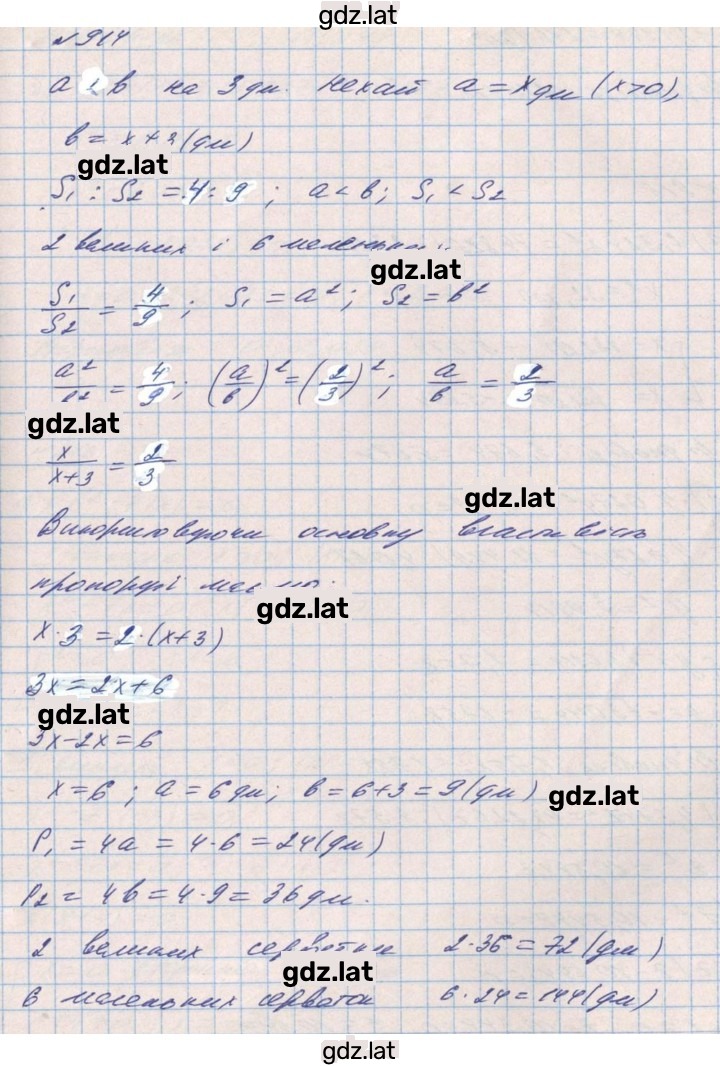 gdz.lat
№914
a < b на 3 дм. Нехай a = x дм (x>0),
b = x + 3 (дм)
gdz.lat
S₁ : S₂ = 4 : 9 ; a < b ; S₁ < S₂
2 великих і 6
gdz.lat
S₁/S₂ = 4/9 ; S₁ = a² ; S₂ = b²
a²/b² = 4/9 ; (a/b)² = (2/3)² ; a/b = 2/3
gdz.lat
x/(x+3) = 2/3
gdz.lat
Використовуючи основну властивість
пропорції
gdz.lat
x · 3 = 2 · (x+3)
3x = 2x + 6
gdz.lat
3x - 2x = 6
x = 6 ; a = 6 дм ; b = 6 + 3 = 9 (дм)
gdz.lat
P₁ = 4a = 4 · 6 = 24 (дм)
P₂ = 4b = 4 · 9 = 36 дм.
2 великих серветки 2 · 36 = 72 (дм)
gdz.lat
6 маленьких серветок 6 · 24 = 144 (дм)
gdz.lat